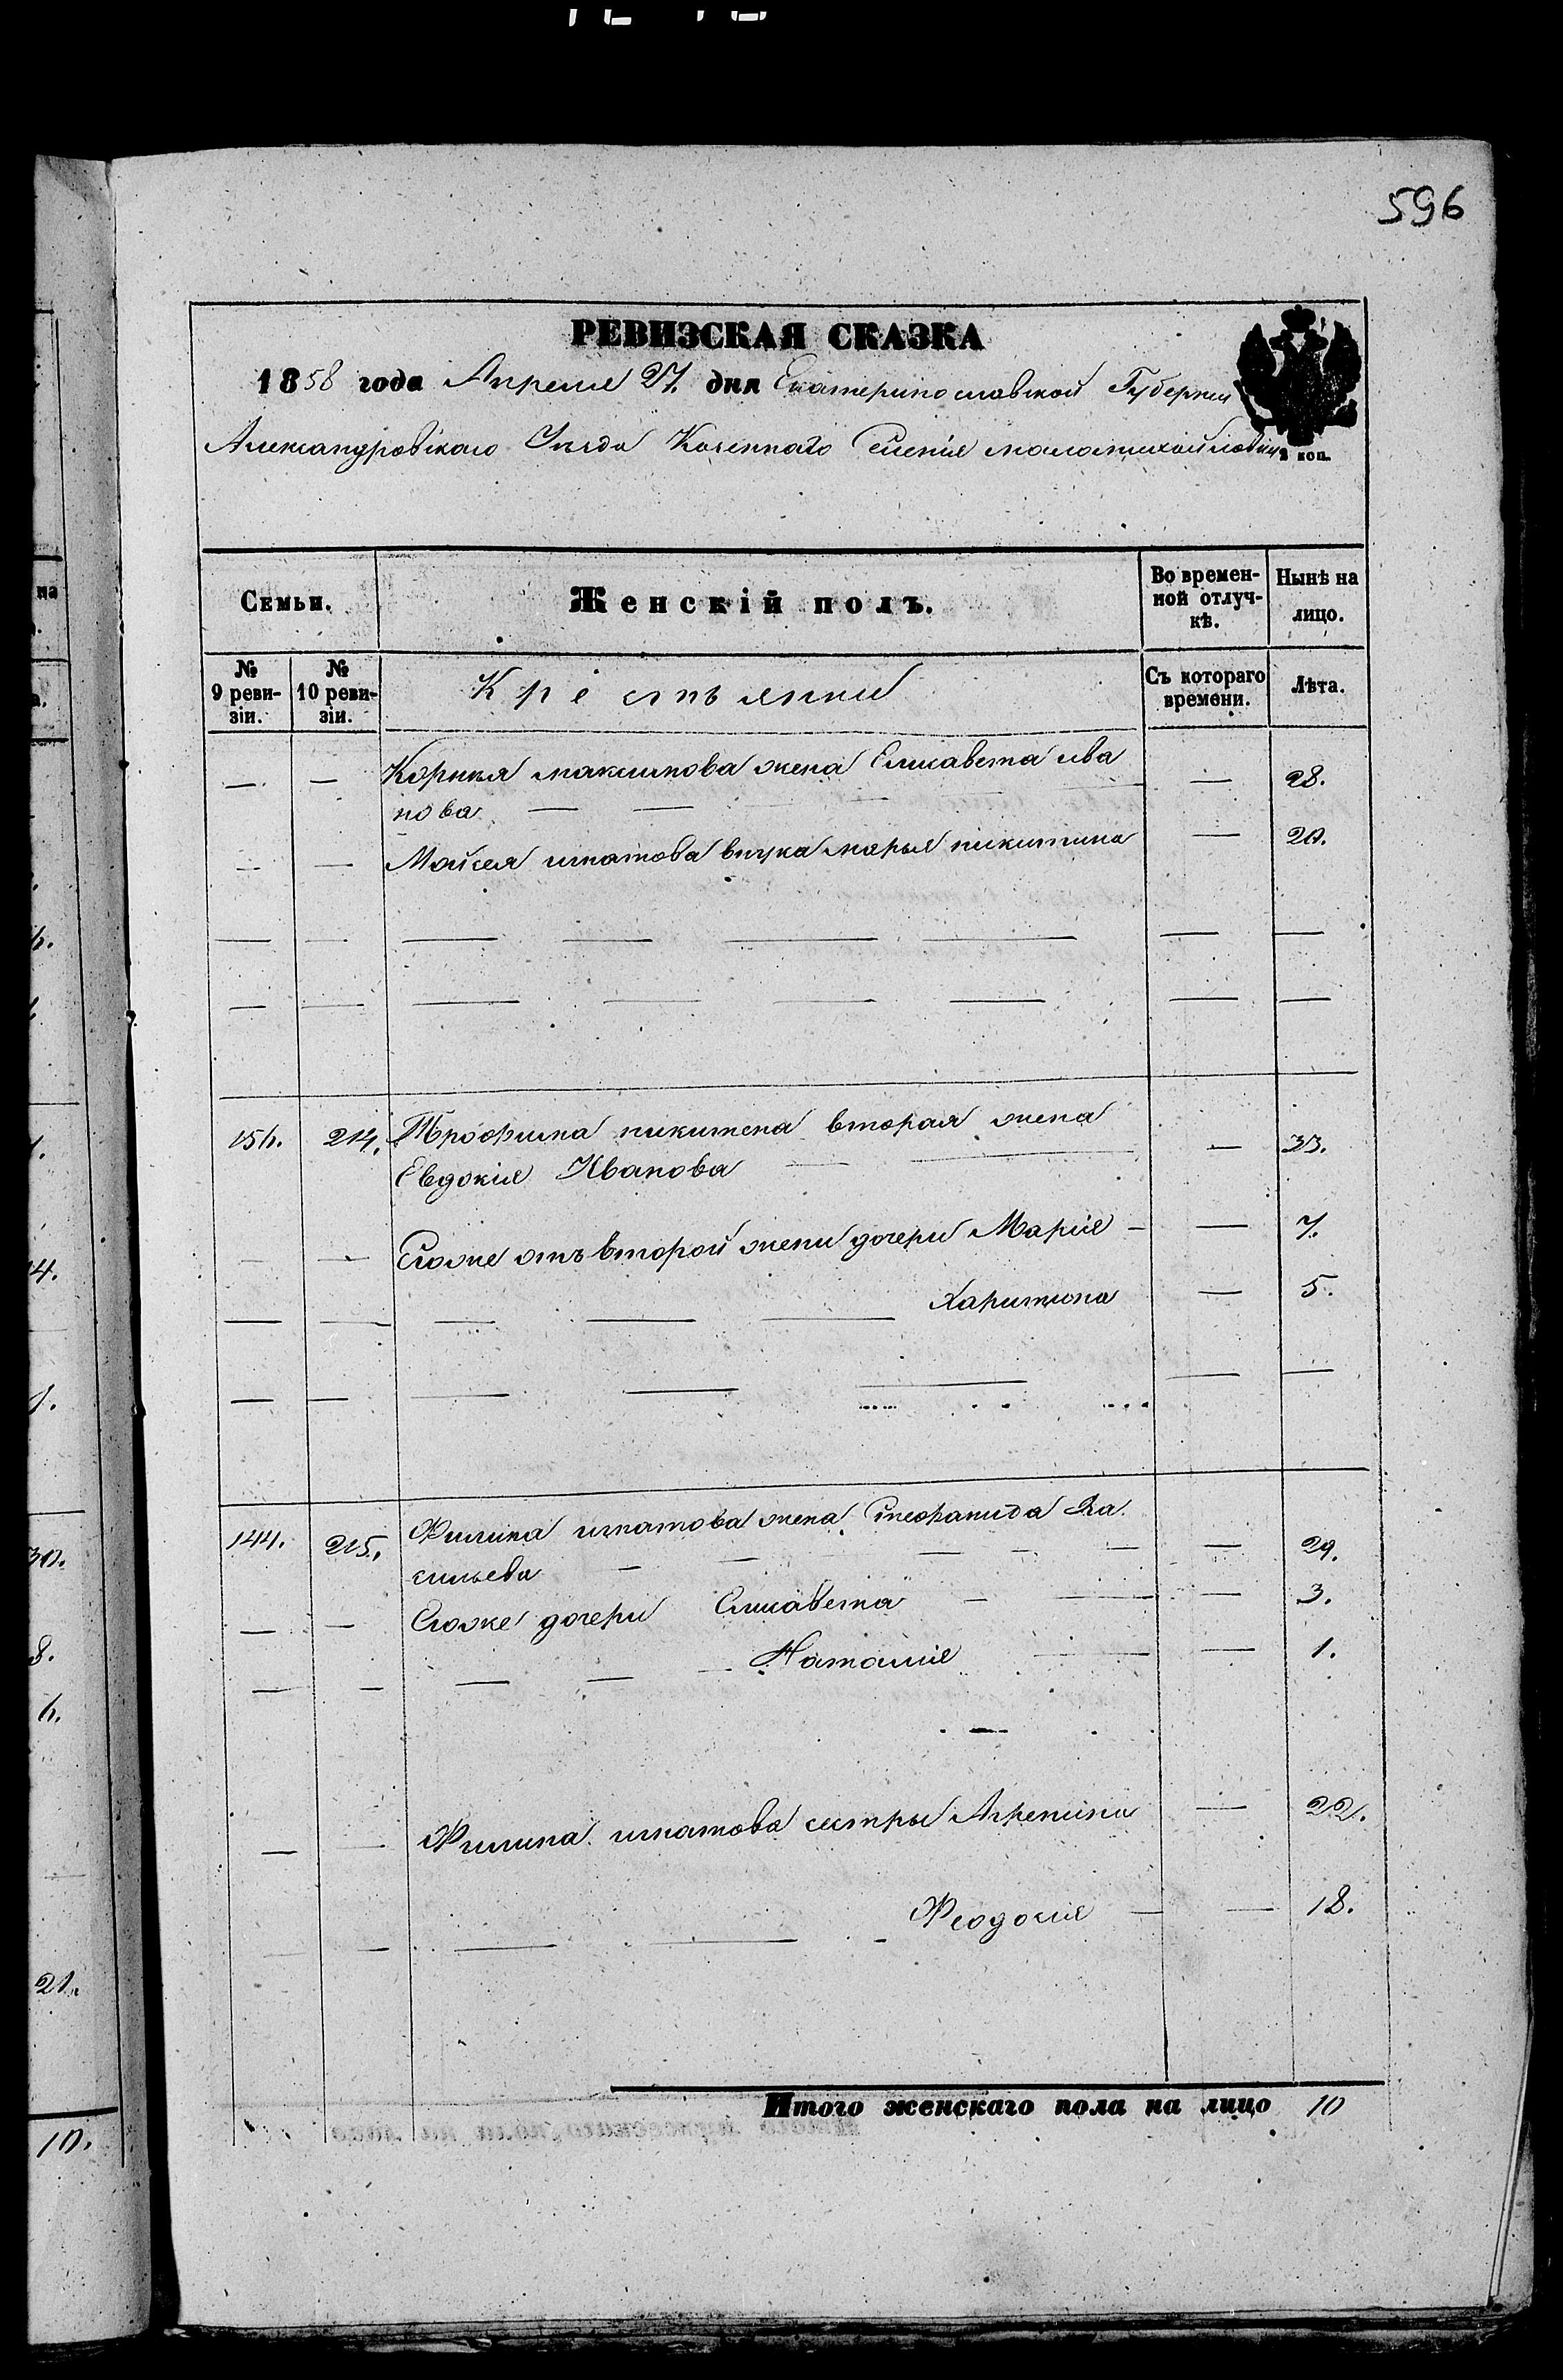 596
РЕВИЗСКАЯ СКАЗКА
1858 года Апреля 27. дня Екатеринославской Губернии
Александровскаго Уезда Козеннаго Селенія маломихайловки
коп.
Семьи. Женскій полъ. Во времен-ной отлуч-кѣ. Нынѣ на лицо.
№ 9 реви-зіи. № 10 реви-зіи. Крестьянки Съ котораго времени. Лѣта.
— — Корнья максимова жена Елисавета ива — 28.
нова
— — Мойсея игнатова внука марья никитина — 20.
156. 214. Трофима никитена вторая жена
Евдокія Иванова — 33.
— — Егоже отъ второй жени дочери Марія — — 7.
— — Харитина — 5.
144. 215. Филипа игнатова жена Стефанида Ва
сильева — 29.
— — Егоже дочери Елисавета — — 3.
— — Наталія — 1.
— — Филипа игнатова сестры Агрепина — 22.
— Феодосія — — 18.
Итого женскаго пола на лицо 10
на
а.
4.
30.
8.
6.
21.
10.